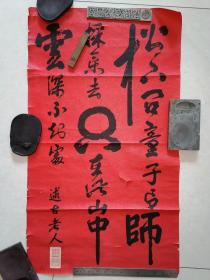 松下問童子言師
採藥去只在此山中
雲深不知處
古老人